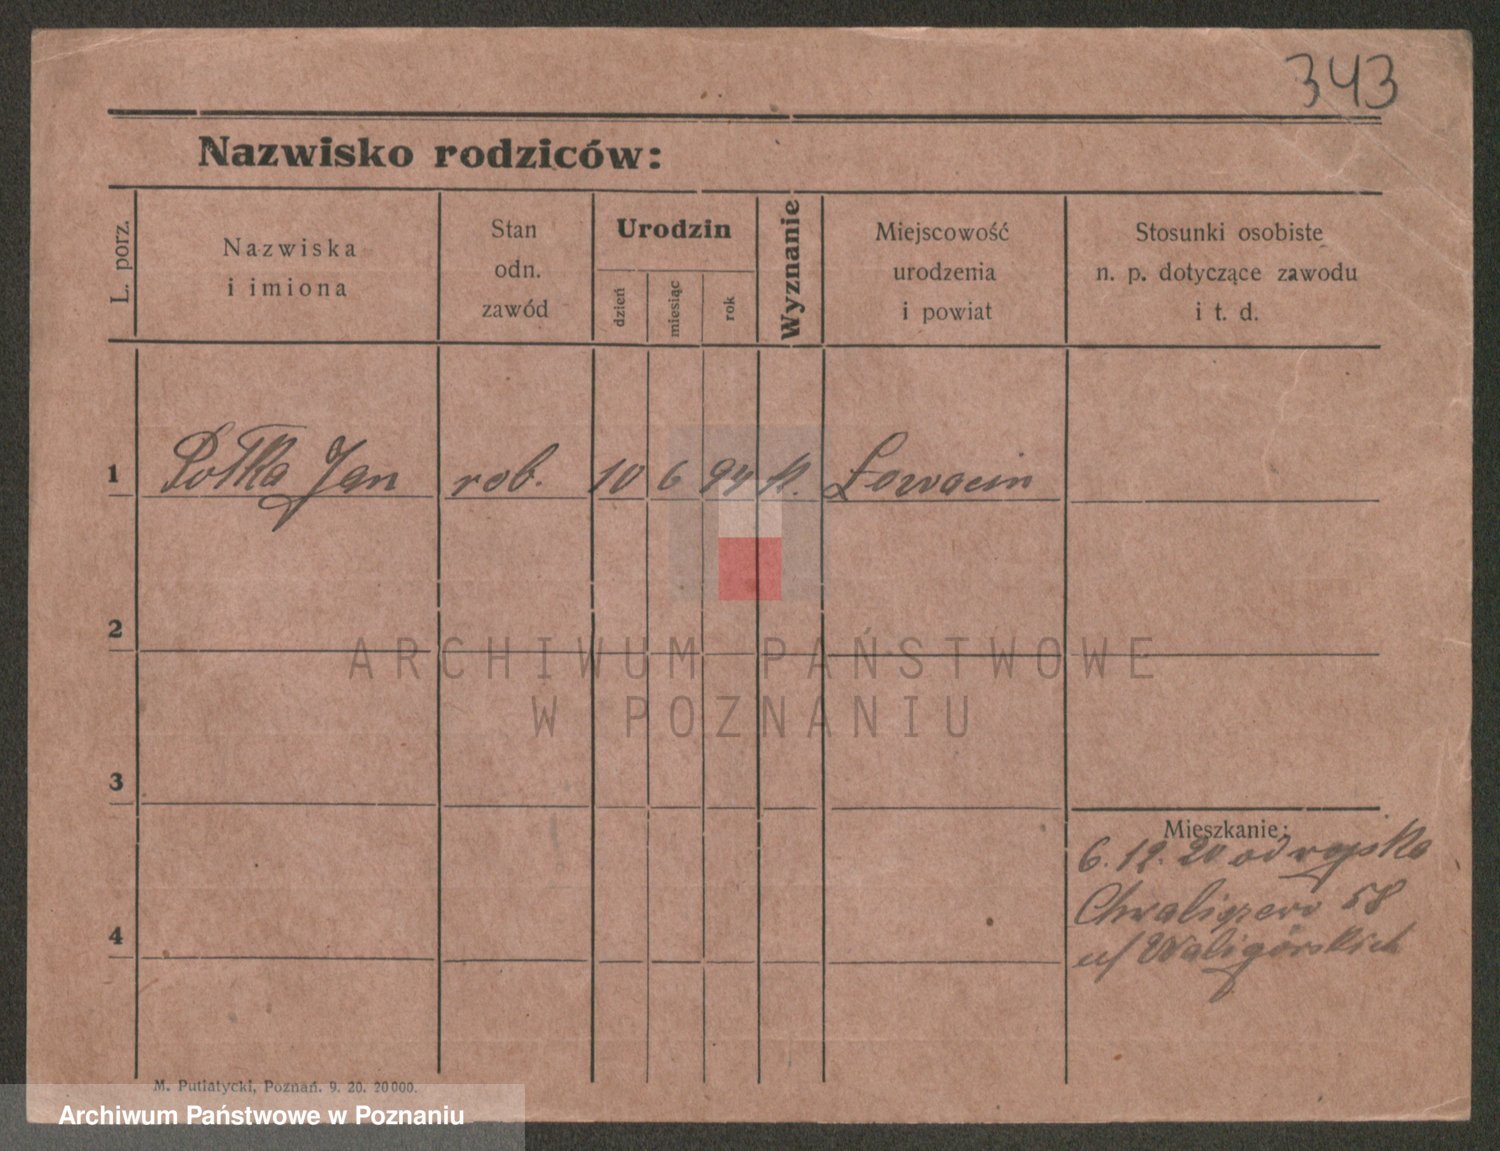 343
Nazwisko rodziców:
L. porz.
Nazwiska
i imiona
Stan
odn.
zawód
Urodzin
dzień
miesiąc
rok
Wyznanie
Miejscowość
urodzenia
i powiat
Stosunki osobiste
n. p. dotyczące zawodu
i t. d.
1 Polka Jan rob. 10 6 94 k.
2
3
4
ARCHIWUM PAŃSTWOWE
W POZNANIU
Mieszkanie:
6. 12. 20 od wojska
Chwaliszewo 58
u/ Waligórskich
M. Putiatycki, Poznań. 9. 20. 20000.
Archiwum Państwowe w Poznaniu